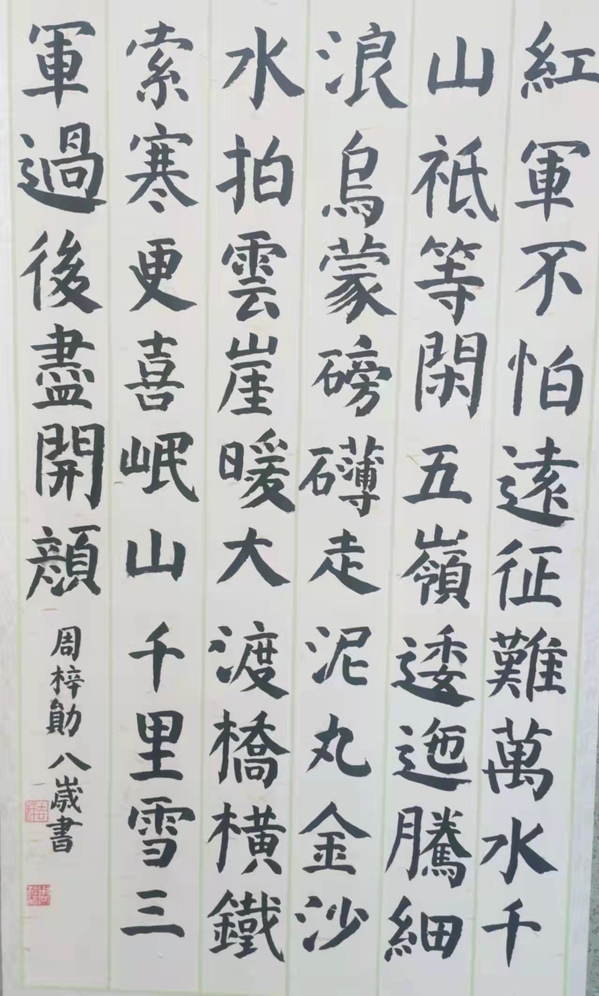 紅軍不怕遠征難萬水千
山祗等閑五嶺逶迤騰細
浪烏蒙磅礴走泥丸金沙
水拍雲崖暖大渡橋橫鐵
索寒更喜岷山千里雪三
軍過後盡開顏
周梓勛八歲書